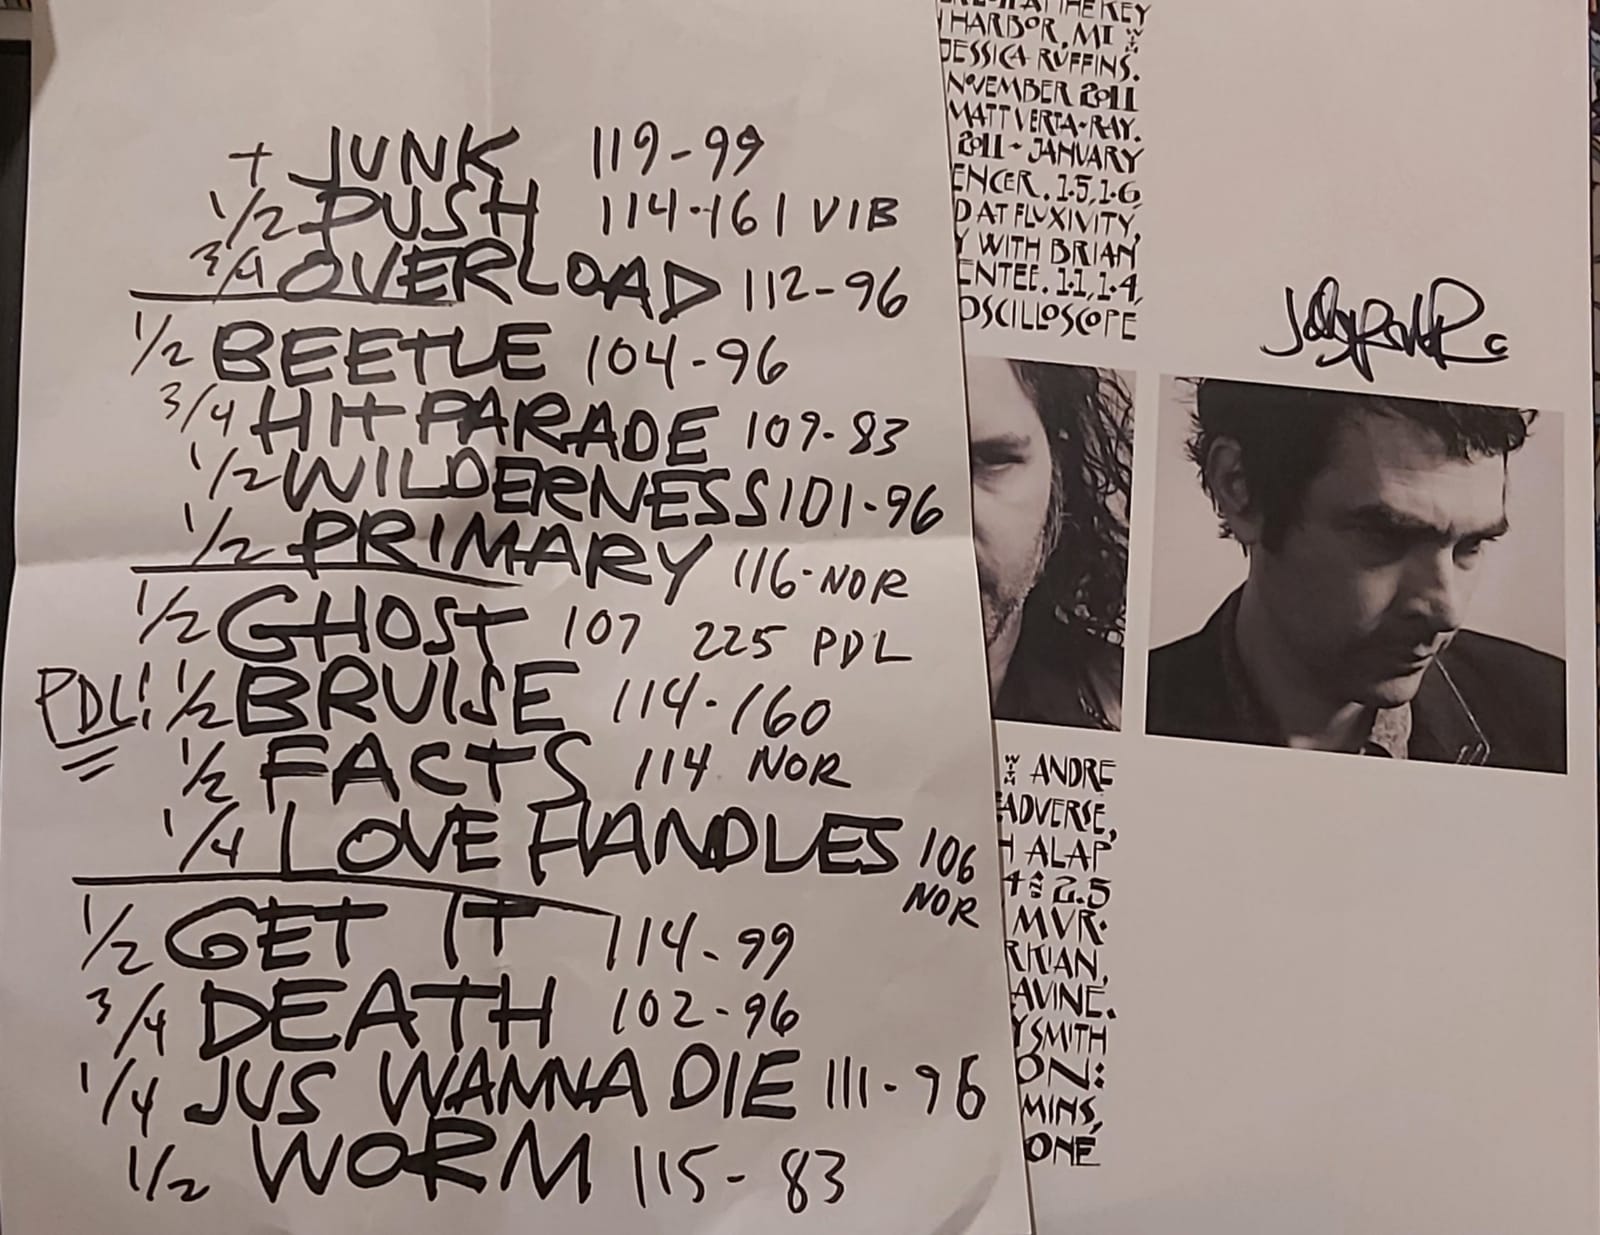 + JUNK 119-99
1/2 PUSH 114-161 VIB
3/4 OVERLOAD 112-96
1/2 BEETLE 104-96
3/4 HIT PARADE 109-83
1/2 WILDERNESS 101-96
1/2 PRIMARY 116-NOR
1/2 GHOST 107 225 PDL
PDL! 1/2 BRUISE 114-160
1/2 FACTS 114 NOR
1/4 LOVE HANDLES 106
NOR
1/2 GET IT 114-99
3/4 DEATH 102-96
1/4 JUS WANNA DIE 111-96
1/2 WORM 115-83
AT THE KEY
HARBOR, MI WITH
JESSICA RUFFINS.
NOVEMBER 2011
MATT VERTA-RAY.
2011 - JANUARY
ENCER. 1.5, 1.6,
D AT FLUXIVITY,
Y WITH BRIAN
ENTEE. 1.1, 1.4,
OSCILLOSCOPE
WITH ANDRE
ADVERSE,
H ALAP
4 AND 2.5
MVR.
RKIAN,
AVINE.
Y SMITH
ON:
MINS,
ONE